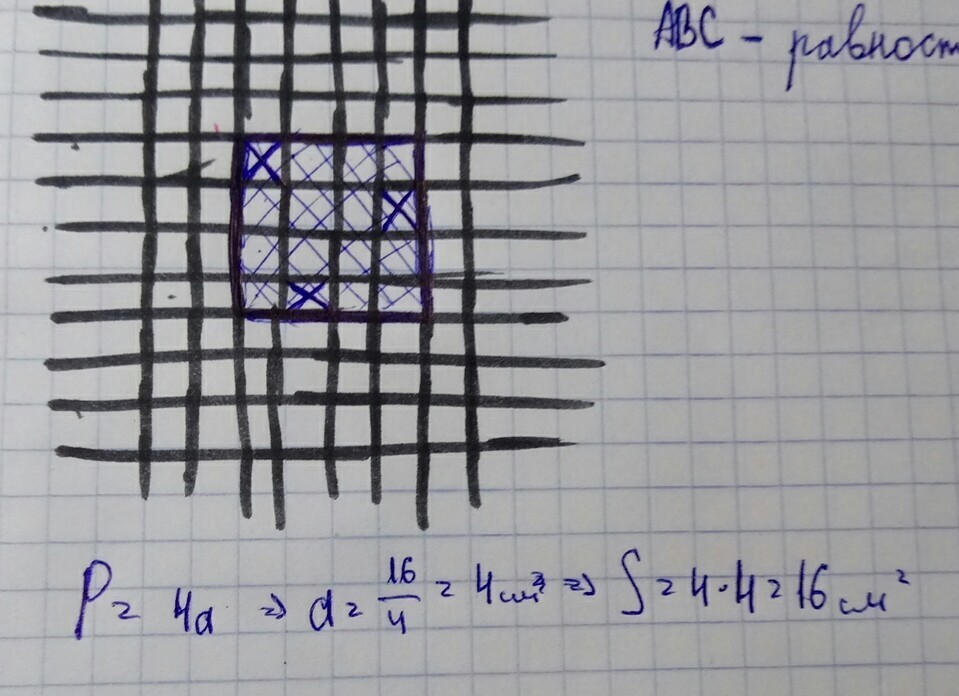 ABC – равност
P = 4a ⇒ a = 16/4 = 4 см² ⇒ S = 4·4 = 16 см²